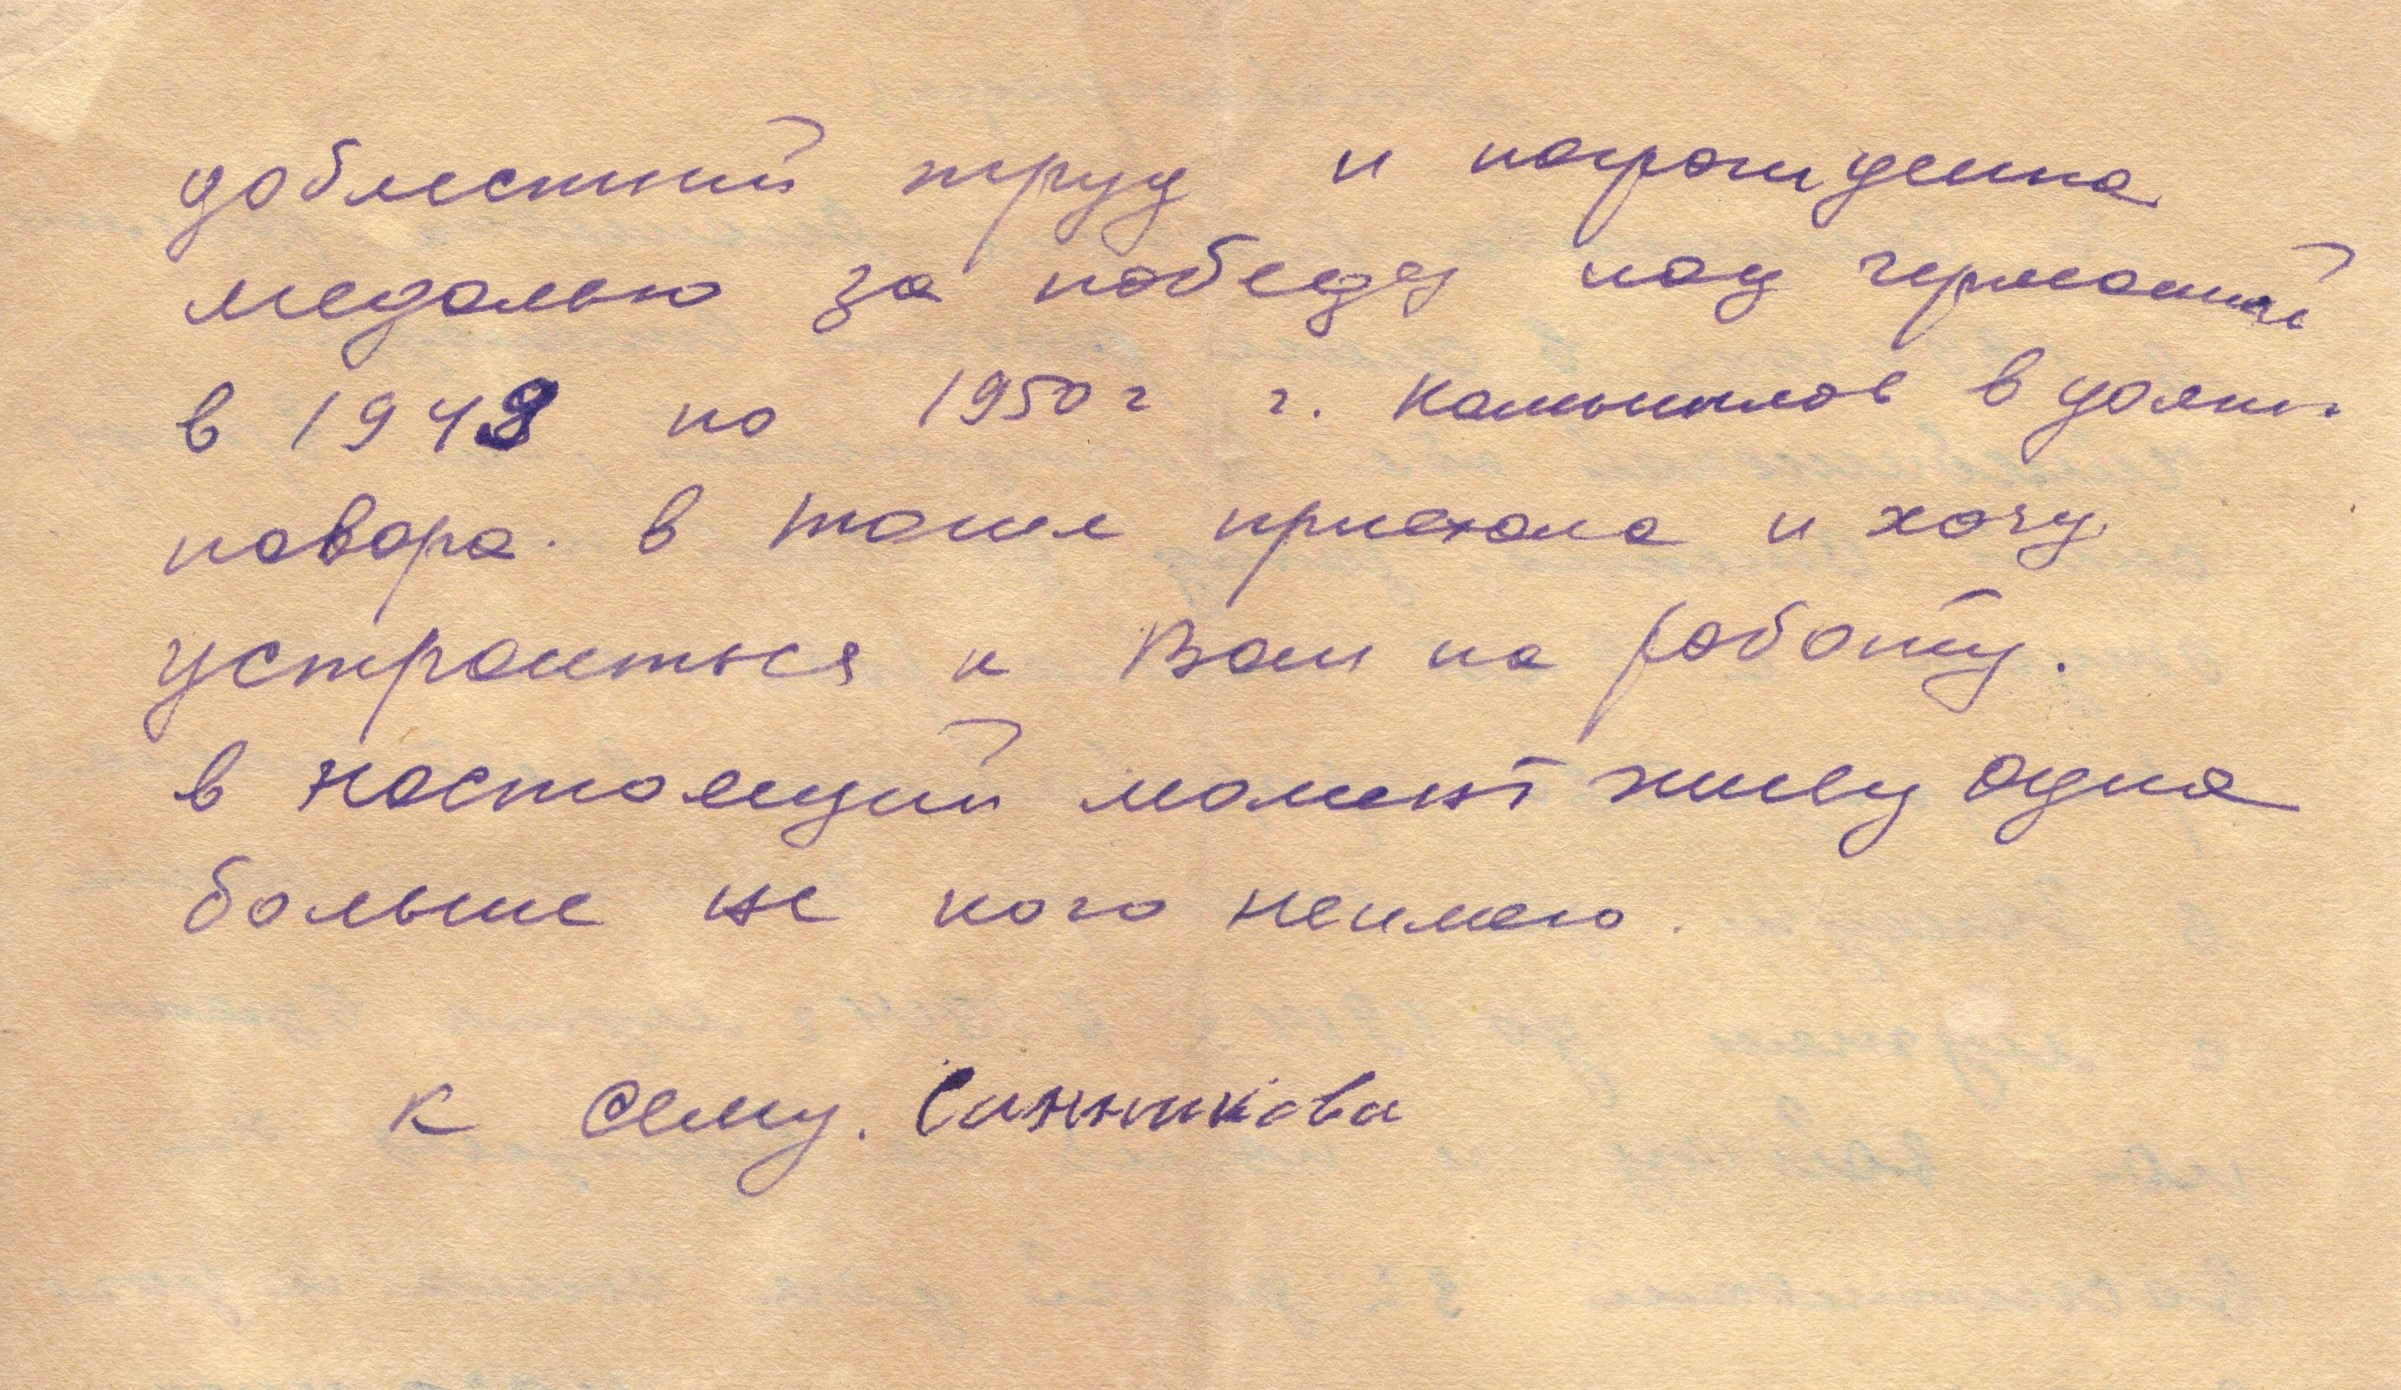 доблестний труд и нагрождена
медалью за победу над германий
в 1948 по 1950г г. Камышлов в должн.
повара. в приехала и хочу
устроиться к Вам на работу.
в настоящий момент живу одна
больше не кого неимею.
к сему. Санникова